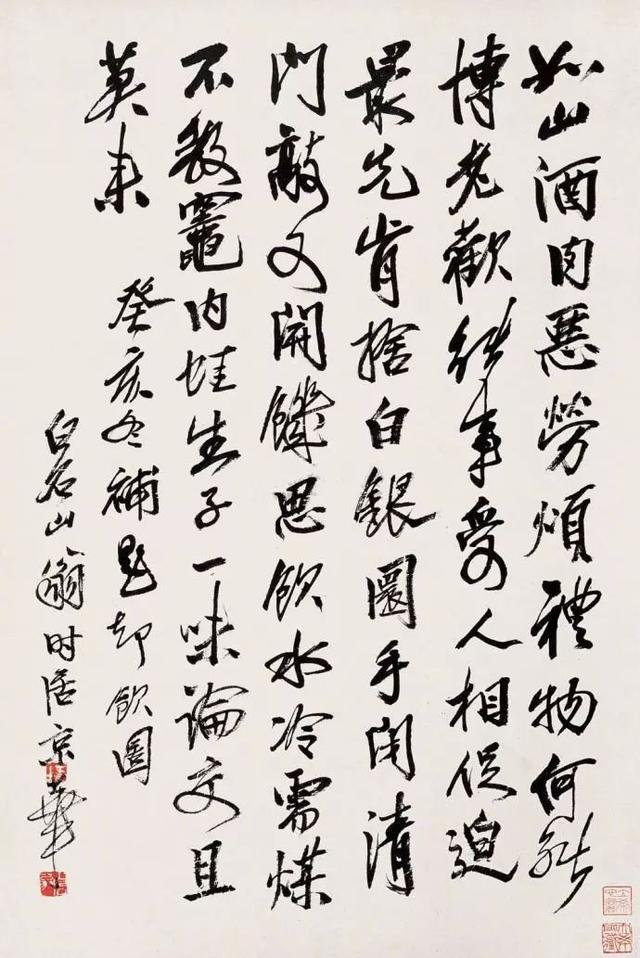 如山酒肉惡勞煩禮物何能
博老歡能事受人相促迫
最先肯捨白銀圜手閒清
門敲又開饑思飲水冷需煤
不數竈内蛙生子一味論文且
莫来
癸亥冬補題却飲圖
白石山翁时居京華